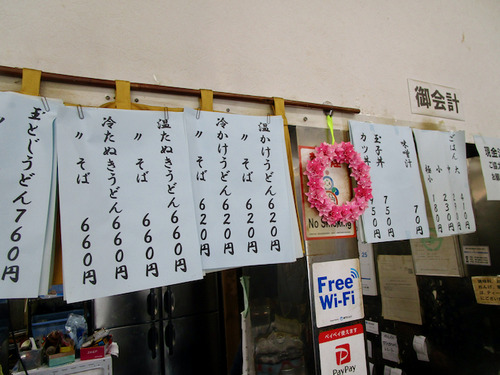 御会計
温かけうどん620円
〃 そば 620円
冷かけうどん620円
〃 そば 620円
温たぬきうどん660円
〃 そば 660円
冷たぬきうどん660円
〃 そば 660円
玉とじうどん760円
味噌汁 70円
玉子丼 750円
カツ丼
ごはん 大
小 230円
極小 180円
No Smoking
Free
Wi-Fi
ペイペイ使えます
PayPay
現金